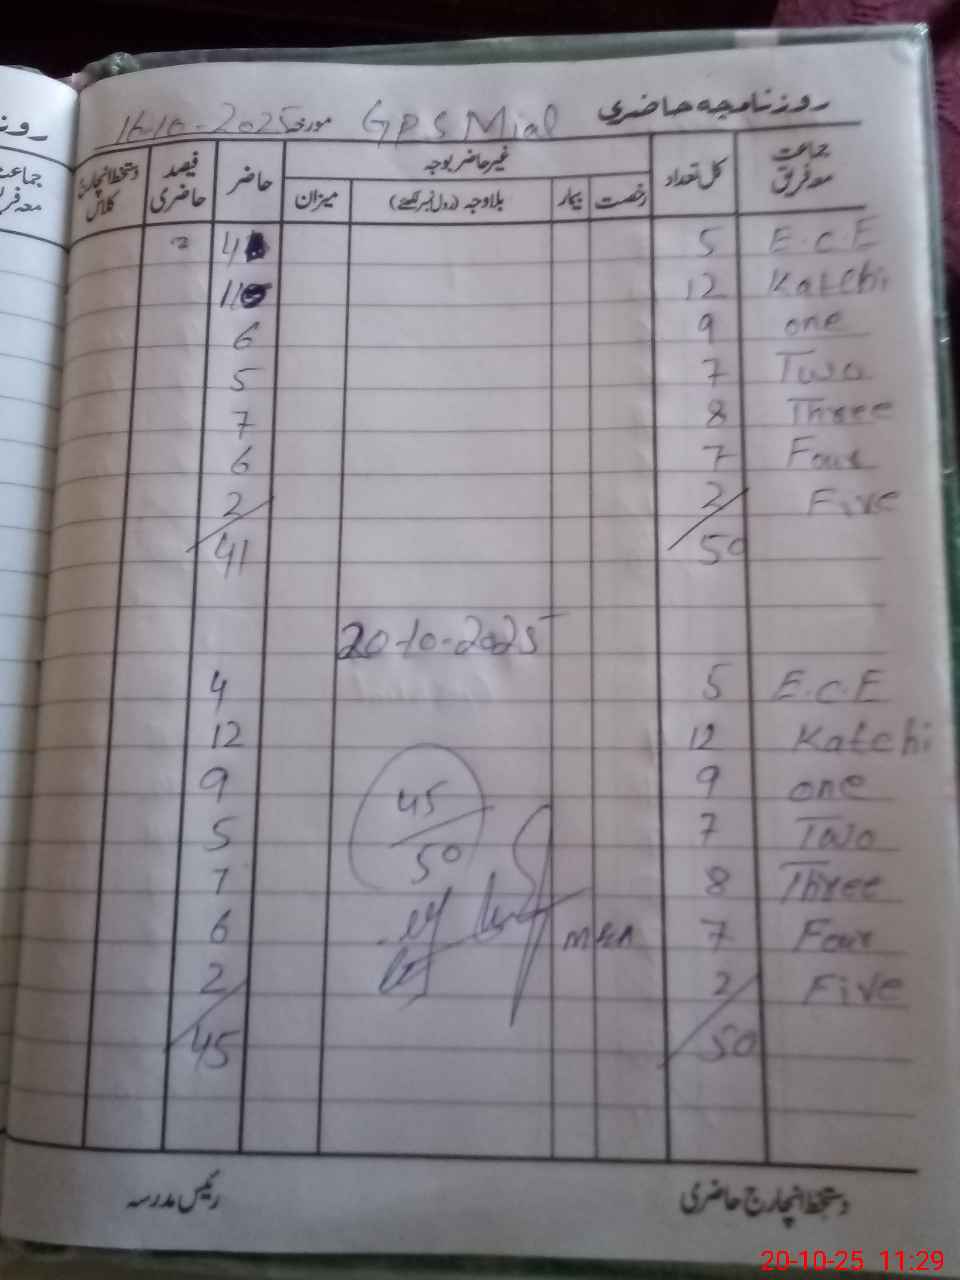 روزنامچہ حاضری GPS Mial مورخہ 16-10-2025
جماعت معہ فریق کل تعداد غیر حاضر بوجہ حاضر فیصد حاضری دستخط انچارج کلاس
رخصت بیمار بلاوجہ (رول نمبر لکھئے) میزان
E.C.E 5 4
Katchi 12 11
one 9 6
Two 7 5
Three 8 7
Four 7 6
Five 2 2
50 41
20-10-2025
E.C.E 5 4
Katchi 12 12
one 9 9
Two 7 5
Three 8 7
Four 7 6
Five 2 2
50 45
45
50
دستخط انچارج حاضری
رئیس مدرسہ
روز
جماعت
معہ فر
20-10-25 11:29